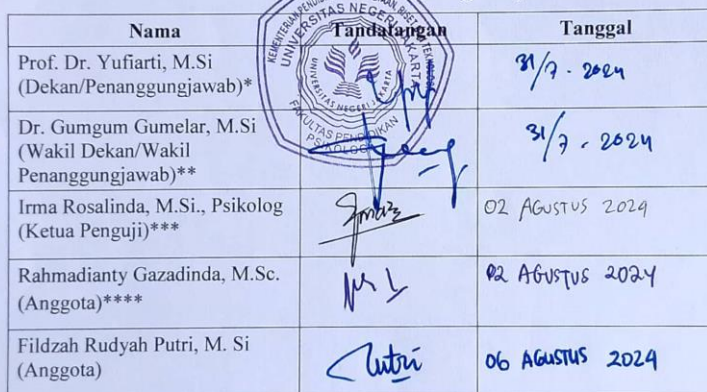 Nama Tandatangan Tanggal
Prof. Dr. Yufiarti, M.Si
(Dekan/Penanggungjawab)*
31/7 - 2024
Dr. Gumgum Gumelar, M.Si
(Wakil Dekan/Wakil
Penanggungjawab)**
31/7 - 2024
Irma Rosalinda, M.Si., Psikolog
(Ketua Penguji)***
02 AGUSTUS 2024
Rahmadianty Gazadinda, M.Sc.
(Anggota)****
02 AGUSTUS 2024
Fildzah Rudyah Putri, M. Si
(Anggota)
Putri
06 AGUSTUS 2024
UNIVERSITAS NEGERI JAKARTA
FAKULTAS PENDIDIKAN
PSIKOLOGI